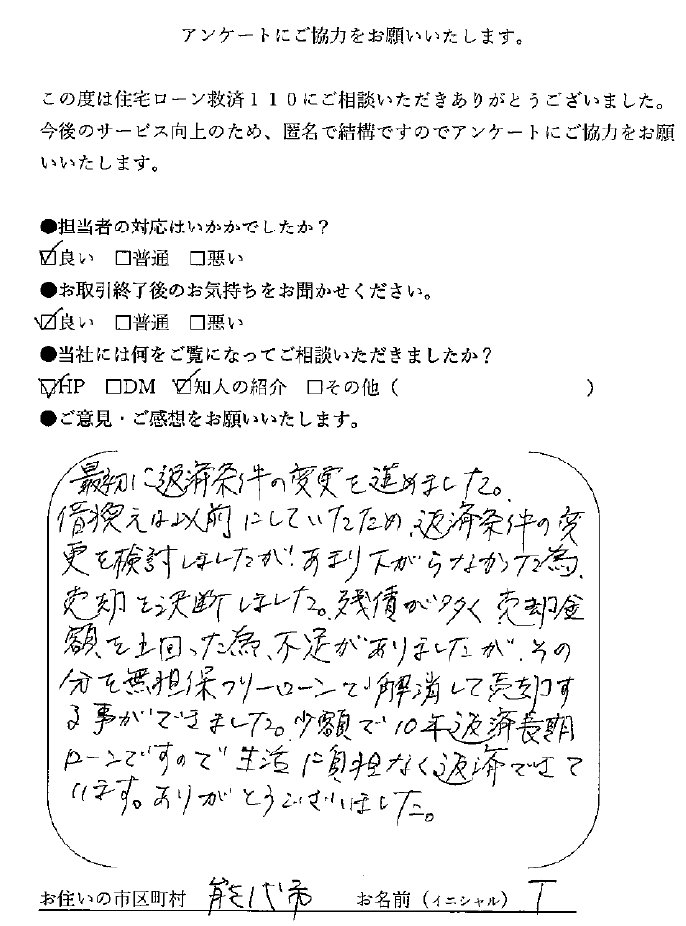 アンケートにご協力をお願いいたします。
この度は住宅ローン救済１１０にご相談いただきありがとうございました。
今後のサービス向上のため、匿名で結構ですのでアンケートにご協力をお願
いいたします。
●担当者の対応はいかかでしたか？
☑良い □普通 □悪い
●お取引終了後のお気持ちをお聞かせください。
☑良い □普通 □悪い
●当社には何をご覧になってご相談いただきましたか？
☑HP □DM ☑知人の紹介 □その他（ ）
●ご意見・ご感想をお願いいたします。
最初に返済条件の変更を進めました。
借換えは以前にしていたため、返済条件の変
更を検討しましたが、あまり下がらなかった為、
売却を決断しました。残債が多く売却金
額を上回った為、不足がありましたが、その
分を無担保フリーローンで解消して売却す
る事ができました。少額で10年返済長期
ローンですので生活に負担なく返済できて
います。ありがとうございました。
お住いの市区町村 能代市 お名前（イニシャル） T